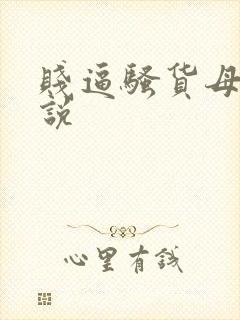 賤逼騷货母
說
心里有錢